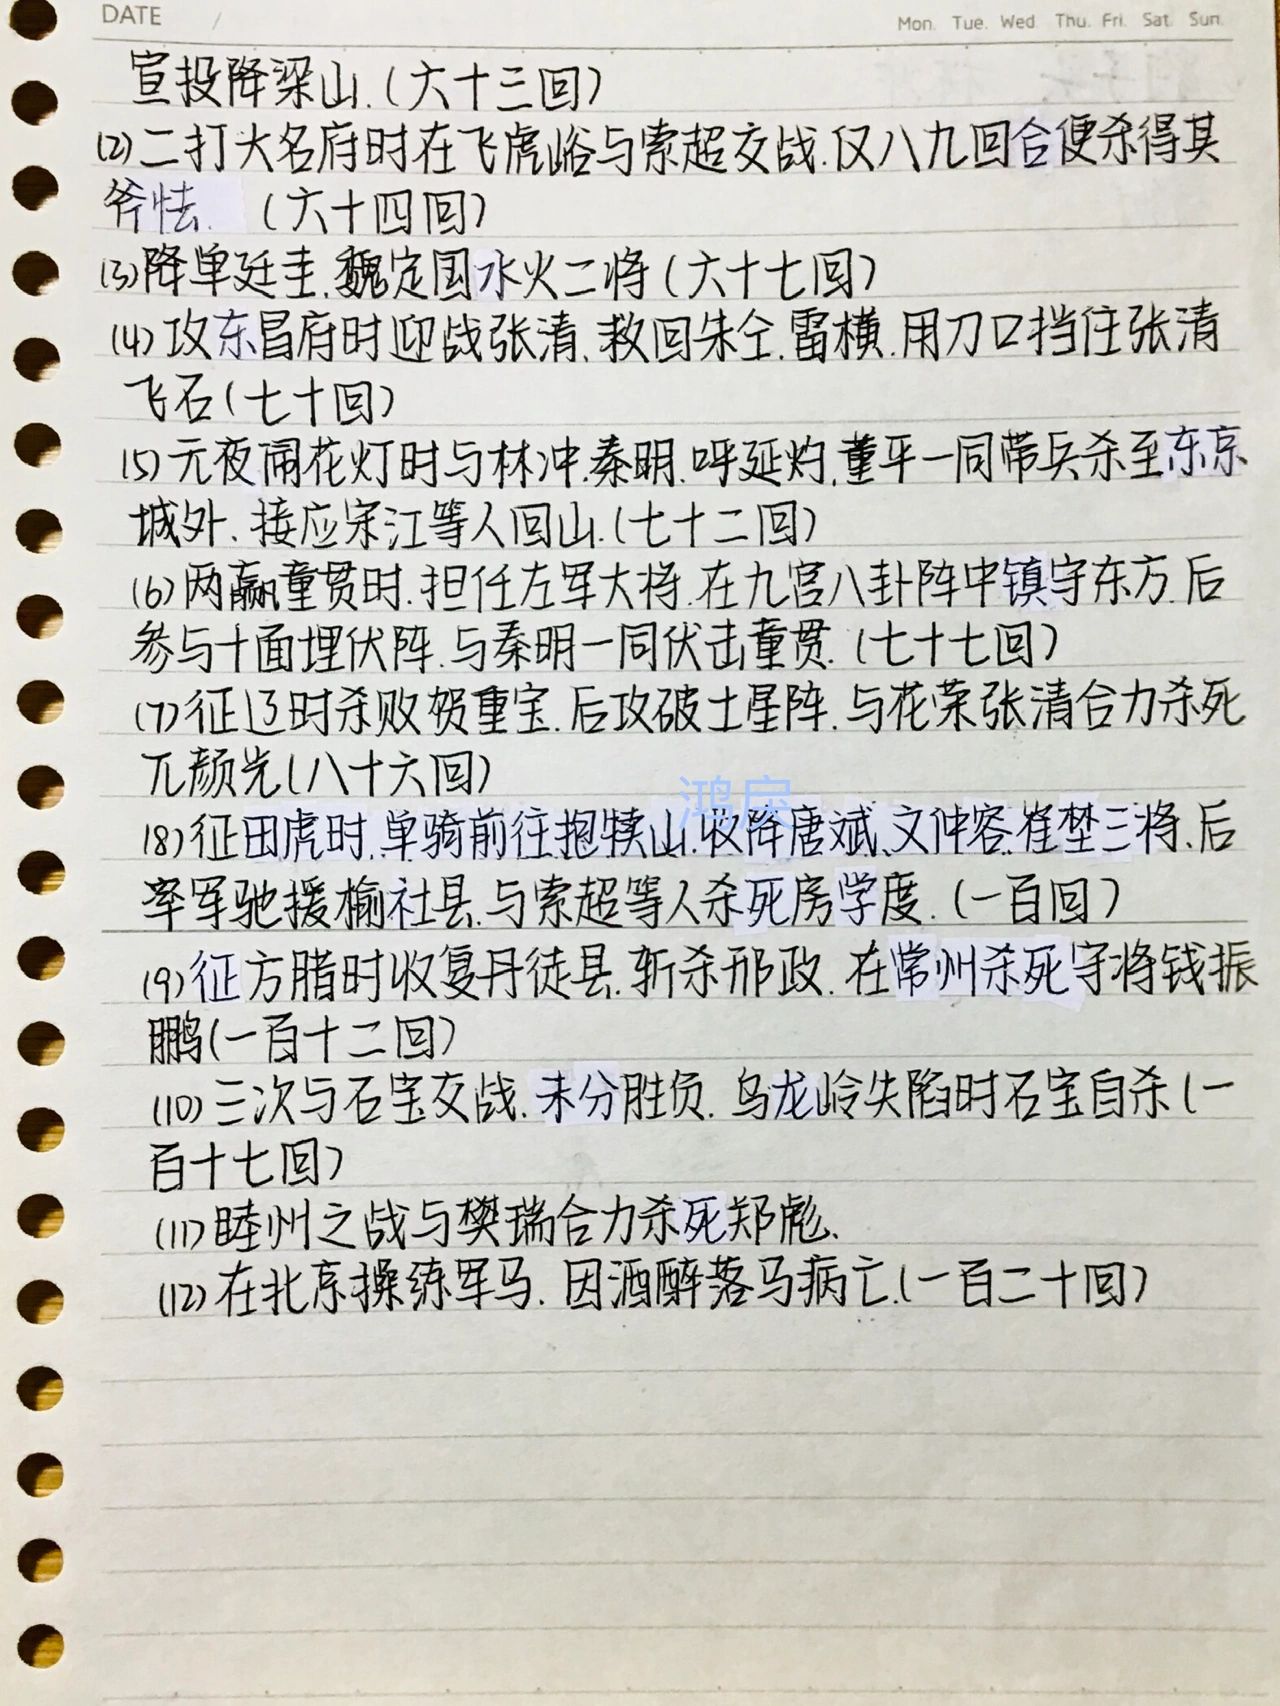 DATE /
Mon. Tue. Wed. Thu. Fri. Sat. Sun.
宣投降梁山.(六十三回)
(2)二打大名府时在飞虎峪与索超交战.仅八九回合便杀得其
斧怯. (六十四回)
(3)降单廷圭.魏定国水火二将(六十七回)
(4)攻东昌府时迎战张清.救回朱仝.雷横.用刀口挡住张清
飞石(七十回)
(5)元夜闹花灯时与林冲.秦明.呼延灼.董平一同带兵杀至东京
城外.接应宋江等人回山.(七十二回)
(6)两赢童贯时.担任左军大将.在九宫八卦阵中镇守东方.后
参与十面埋伏阵.与秦明一同伏击童贯.(七十七回)
(7)征辽时杀败贺重宝.后攻破土星阵.与花荣张清合力杀死
兀颜光(八十六回)
(8)征田虎时.单骑前往抱犊山.收降唐斌.文仲容.崔埜三将.后
率军驰援榆社县.与索超等人杀死房学度.(一百回)
(9)征方腊时收复丹徒县.斩杀邢政.在常州杀死守将钱振
鹏(一百十二回)
(10)三次与石宝交战.未分胜负.乌龙岭失陷时石宝自杀(一
百十七回)
(11)睦州之战与樊瑞合力杀死郑彪.
(12)在北京操练军马.因酒醉落马病亡.(一百二十回)
鸿戾